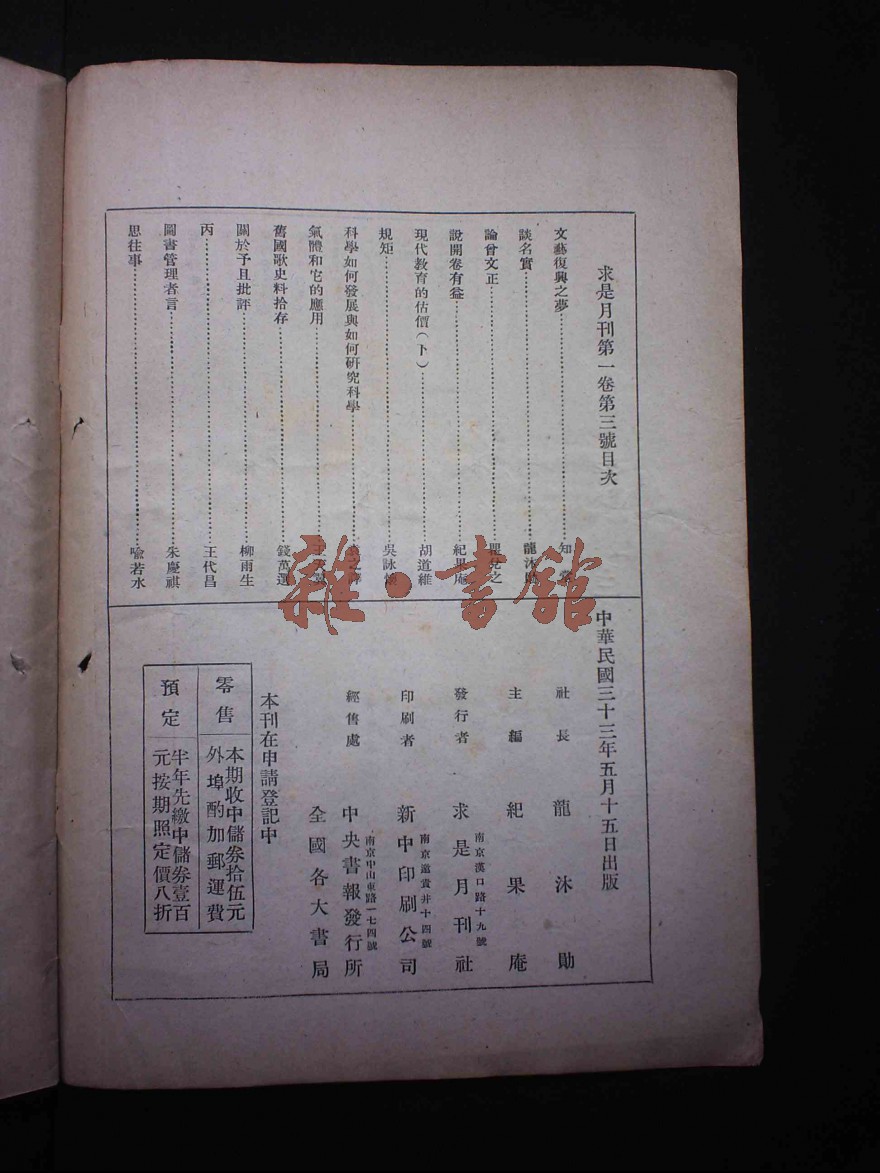 求是月刊第一卷第三號目次
文藝復興之夢……知堂
談名實……龍沐勛
論曾文正……瞿兌之
說開卷有益……紀果庵
現代教育的估價(下)……胡道維
規矩……吳詠
科學如何發展與如何研究科學……之
氣體和它的應用……王
舊國歌史料拾存……錢萬選
關於予且批評……柳雨生
丙……王代昌
圖書管理者言……朱慶祺
思往事……喩若水
中華民國三十三年五月十五日出版
社長 龍沐勛
主編 紀果庵
發行者 求是月刊社
南京漢口路十九號
印刷者 新中印刷公司
南京邀貴井十四號
經售處 中央書報發行所
南京中山東路一七四號
全國各大書局
本刊在申請登記中
零售 本期收中儲券拾伍元
外埠酌加郵運費
預定 半年先繳中儲券壹百
元按期照定價八折
雜·書館